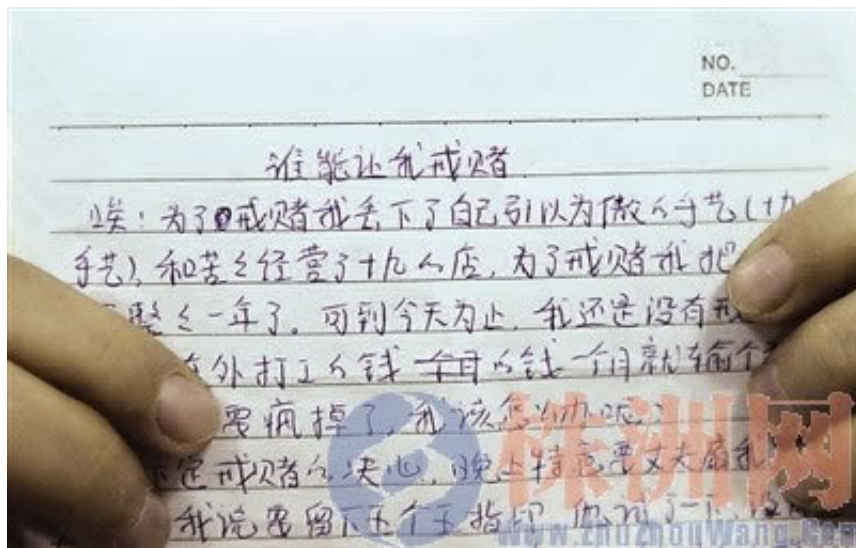 NO.
DATE
谁能让我戒赌
唉!为了戒赌我丢下了自己引以为傲的手艺(十九
手艺),和苦々经营了十九的店,为了戒赌我把
整々一年了。可到今天为止,我还是没有戒
外打工的钱 一个月的钱 一个月就输个
要疯掉了,我该怎么办呢?
定戒赌的决心,晚上特意要丈夫扇我
我说要留下五个手指印
株洲网
www.zhuzhouwang.com